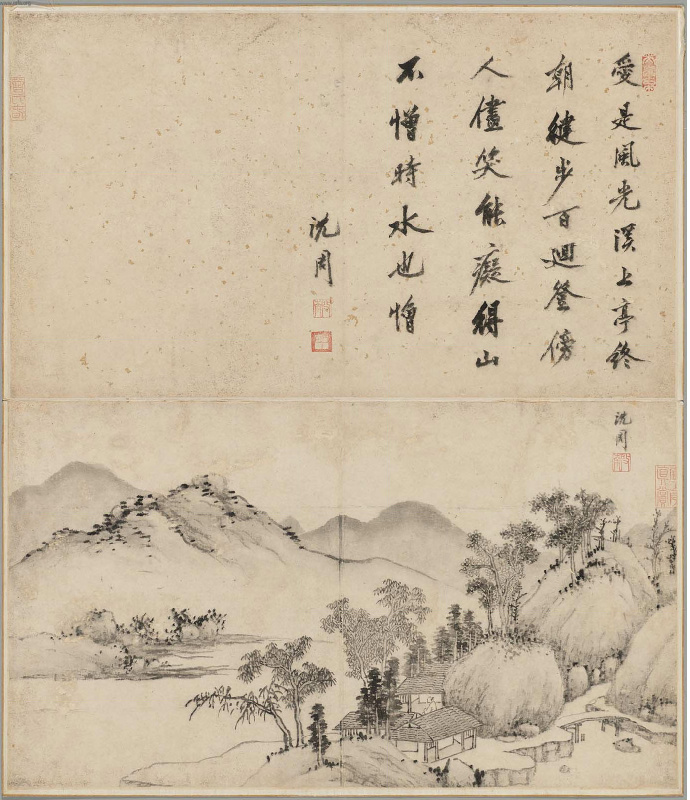 愛是風光溪上亭終
朝健步百迴登傍
人儘笑能癡得山
不憎時水也憎
沈周
沈周